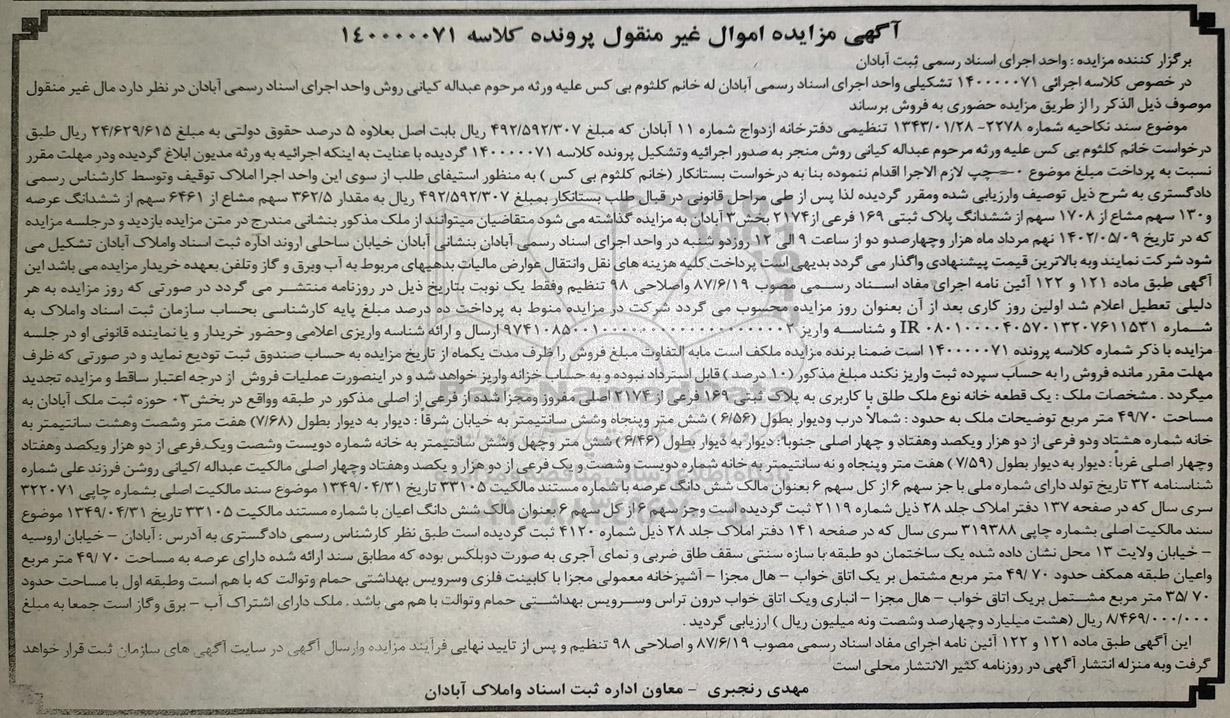 آگهی مزایده اموال غیر منقول پرونده کلاسه ۱۴۰۰۰۰۰۷۱
برگزار کننده مزایده : واحد اجرای اسناد رسمی ثبت آبادان
در خصوص کلاسه اجرائی ۱۴۰۰۰۰۰۷۱ تشکیلی واحد اجرای اسناد رسمی آبادان له خانم کلثوم بی کس علیه ورثه مرحوم عبداله کیانی روش واحد اجرای اسناد رسمی آبادان در نظر دارد مال غیر منقول
موصوف ذیل الذکر را از طریق مزایده حضوری به فروش برساند
موضوع سند نکاحیه شماره ۲۲۷۸- ۱۳۴۳/۰۱/۲۸ تنظیمی دفترخانه ازدواج شماره ۱۱ آبادان که مبلغ ۴۹۲/۵۹۲/۳۰۷ ریال بابت اصل بعلاوه ۵ درصد حقوق دولتی به مبلغ ۲۴/۶۲۹/۶۱۵ ریال طبق
درخواست خانم کلثوم بی کس علیه ورثه مرحوم عبداله کیانی روش منجر به صدور اجرائیه وتشکیل پرونده کلاسه ۱۴۰۰۰۰۰۷۱ گردیده با عنایت به اینکه اجرائیه به ورثه مدیون ابلاغ گردیده ودر مهلت مقرر
نسبت به پرداخت مبلغ موضوع لازم الاجرا اقدام ننموده بنا به درخواست بستانکار (خانم کلثوم بی کس ) به منظور استیفای طلب از سوی این واحد اجرا املاک توقیف وتوسط کارشناس رسمی
دادگستری به شرح ذیل توصیف وارزیابی شده ومقرر گردیده لذا پس از طی مراحل قانونی در قبال طلب بستانکار بمبلغ ۴۹۲/۵۹۲/۳۰۷ ریال به مقدار ۳۶۲/۵ سهم مشاع از ۶۴۶۱ سهم از ششدانگ عرصه
و۱۳۰ سهم مشاع از ۱۷۰۸ سهم از ششدانگ پلاک ثبتی ۱۶۹ فرعی از۲۱۷۴ بخش ۳ آبادان به مزایده گذاشته می شود متقاضیان میتوانند از ملک مذکور بنشانی مندرج در متن مزایده بازدید و درجلسه مزایده
که در تاریخ ۱۴۰۲/۰۵/۰۹ نهم مرداد ماه هزار وچهارصدو دو از ساعت ۹ الی ۱۲ روزدو شنبه در واحد اجرای اسناد رسمی آبادان بنشانی آبادان خیابان ساحلی اروند اداره ثبت اسناد واملاک آبادان تشکیل می
شود شرکت نمایند وبه بالاترین قیمت پیشنهادی واگذار می گردد بدیهی است پرداخت کلیه هزینه های نقل وانتقال عوارض مالیات بدهیهای مربوط به آب وبرق و گاز وتلفن بعهده خریدار مزایده می باشد این
آگهی طبق ماده ۱۲۱ و ۱۲۲ آئین نامه اجرای مفاد اسناد رسمی مصوب ۸۷/۶/۱۹ واصلاحی ۹۸ تنظیم وفقط یک نوبت بتاریخ ذیل در روزنامه منتشر می گردد در صورتی که روز مزایده به هر
دلیلی تعطیل اعلام شد اولین روز کاری بعد از آن بعنوان روز مزایده محسوب می گردد شرکت در مزایده منوط به پرداخت ده درصد مبلغ پایه کارشناسی بحساب سازمان ثبت اسناد واملاک به
شماره IR ۰۸۰۱۰۰۰۰۴۰۵۷۰۱۳۲۰۷۶۱۱۵۳۱ و شناسه واریز ارسال و ارائه شناسه واریزی اعلامی وحضور خریدار و یا نماینده قانونی او در جلسه
مزایده با ذکر شماره کلاسه پرونده ۱۴۰۰۰۰۰۷۱ است ضمنا برنده مزایده ملکف است مابه التفاوت مبلغ فروش را ظرف مدت یکماه از تاریخ مزایده به حساب صندوق ثبت تودیع نماید و در صورتی که ظرف
مهلت مقرر مانده فروش را به حساب سپرده ثبت واریز نکند مبلغ مذکور (۱۰ درصد ) قابل استرداد نبوده و به حساب خزانه واریز خواهد شد و در اینصورت عملیات فروش از درجه اعتبار ساقط و مزایده تجدید
میگردد . مشخصات ملک : یک قطعه خانه نوع ملک طلق با کاربری به پلاک ثبتی ۱۶۹ فرعی از ۲۱۷۴ اصلی مفروز ومجزا شده از فرعی از اصلی مذکور در طبقه وواقع در بخش ۰۳ حوزه ثبت ملک آبادان به
مساحت ۴۹/۷۰ متر مربع توضیحات ملک به حدود : شمالاً درب ودیوار بطول (۶/۵۶) شش متر وپنجاه وشش سانتیمتر به خیابان شرقاً : دیوار به دیوار بطول (۷/۶۸) هفت متر وشصت وهشت سانتیمتر به
خانه شماره هشتاد ودو فرعی از دو هزار ویکصد وهفتاد و چهار اصلی جنوباً: دیوار به دیوار بطول (۶/۴۶) شش متر وچهل وشش سانتیمتر به خانه شماره دویست وشصت ویک فرعی از دو هزار ویکصد وهفتاد
وچهار اصلی غرباً : دیوار به دیوار بطول (۷/۵۹) هفت متر وپنجاه و نه سانتیمتر به خانه شماره دویست وشصت و یک فرعی از دو هزار و یکصد وهفتاد وچهار اصلی مالکیت عبداله /کیانی روشن فرزند علی شماره
شناسنامه ۳۲ تاریخ تولد دارای شماره ملی با جز سهم ۶ از کل سهم ۶ بعنوان مالک شش دانگ عرصه با شماره مستند مالکیت ۳۳۱۰۵ تاریخ ۱۳۴۹/۰۴/۳۱ موضوع سند مالکیت اصلی بشماره چاپی ۳۲۲۰۷۱
سری سال که در صفحه ۱۳۷ دفتر املاک جلد ۲۸ ذیل شماره ۲۱۱۹ ثبت گردیده است وجز سهم ۶ از کل سهم ۶ بعنوان مالک شش دانگ اعیان با شماره مستند مالکیت ۳۳۱۰۵ تاریخ ۱۳۴۹/۰۴/۳۱ موضوع
سند مالکیت اصلی بشماره چاپی ۳۱۹۳۸۸ سری سال که در صفحه ۱۴۱ دفتر املاک جلد ۲۸ ذیل شماره ۴۱۲۰ ثبت گردیده است طبق نظر کارشناس رسمی دادگستری به آدرس : آبادان – خیابان اروسیه
– خیابان ولایت ۱۳ محل نشان داده شده یک ساختمان دو طبقه با سازه سنتی سقف طاق ضربی و نمای آجری به صورت دوبلکس بوده که مطابق سند ارائه شده دارای عرصه به مساحت ۴۹/۷۰ متر مربع
واعیان طبقه همکف حدود ۴۹/۷۰ متر مربع مشتمل بر یک اتاق خواب – هال مجزا – آشپزخانه معمولی مجزا با کابینت فلزی وسرویس بهداشتی حمام وتوالت که با هم است وطبقه اول با مساحت حدود
۳۵/۷۰ متر مربع مشتمل بریک اتاق خواب – هال مجزا – انباری ویک اتاق خواب درون تراس وسرویس بهداشتی حمام وتوالت با هم می باشد . ملک دارای اشتراک آب – برق وگاز است جمعا به مبلغ
۸/۴۶۹/۰۰۰/۰۰۰ ریال (هشت میلیارد وچهارصد وشصت ونه میلیون ریال ) ارزیابی گردید .
این آگهی طبق ماده ۱۲۱ و ۱۲۲ آئین نامه اجرای مفاد اسناد رسمی مصوب ۸۷/۶/۱۹ و اصلاحی ۹۸ تنظیم و پس از تایید نهایی فرآیند مزایده وارسال آگهی در سایت آگهی های سازمان ثبت قرار خواهد
گرفت وبه منزله انتشار آگهی در روزنامه کثیر الانتشار محلی است
مهدی رنجبری – معاون اداره ثبت اسناد واملاک آبادان